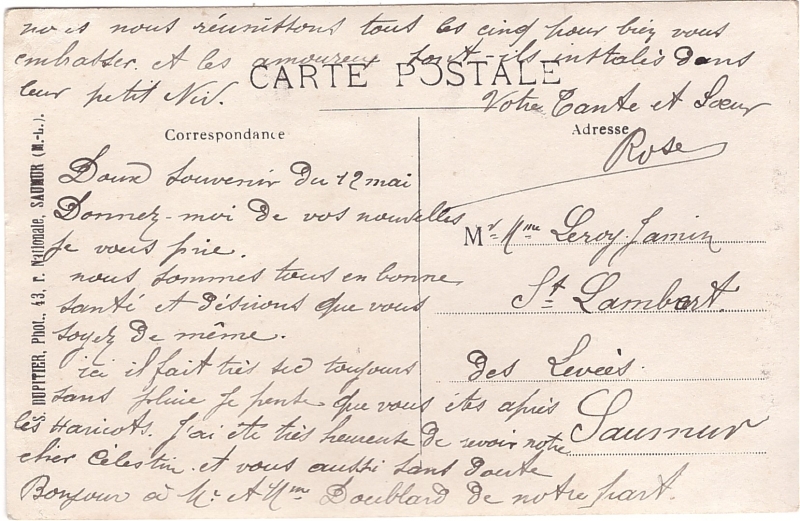 nous nous réunissons tous les cinq pour bien vous
embrasser. et les amoureux sont-ils installés dans
leur petit Nid.
CARTE POSTALE
Votre Tante et Soeur
Rose
Correspondance
Adresse
Doux Souvenir du 12 mai
Donnez-moi de vos nouvelles
je vous prie.
nous sommes tous en bonne
santé et désirons que vous
soyez de même.
ici il fait très sec toujours
sans pluie je pense que vous êtes après
les Haricots. J'ai été très heureuse de revoir notre
cher Célestin. et vous aussi sans doute
Bonjour à Mr et Mme Doublard de notre part.
Mr Mme Leroy-Jamin
St Lambert
des Levées
Saumur
S. DUPITIER, Phot., 43, r. Nationale, SAUMUR (M.-L.).